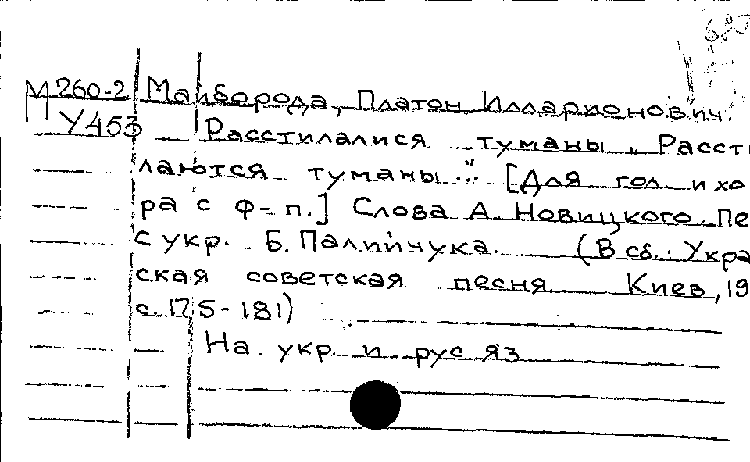 М 260-2 Майборода, Платон Илларионович.
У453 Расстилалися туманы „Рассти
лаются туманы..." [Для гол. и хо
ра с ф-п.] Слова А. Новицкого. Пе
с укр. Б. Палийчука. (В сб.: Укра
ская советская песня Киев, 19
с. 175-181)
На укр. и рус яз